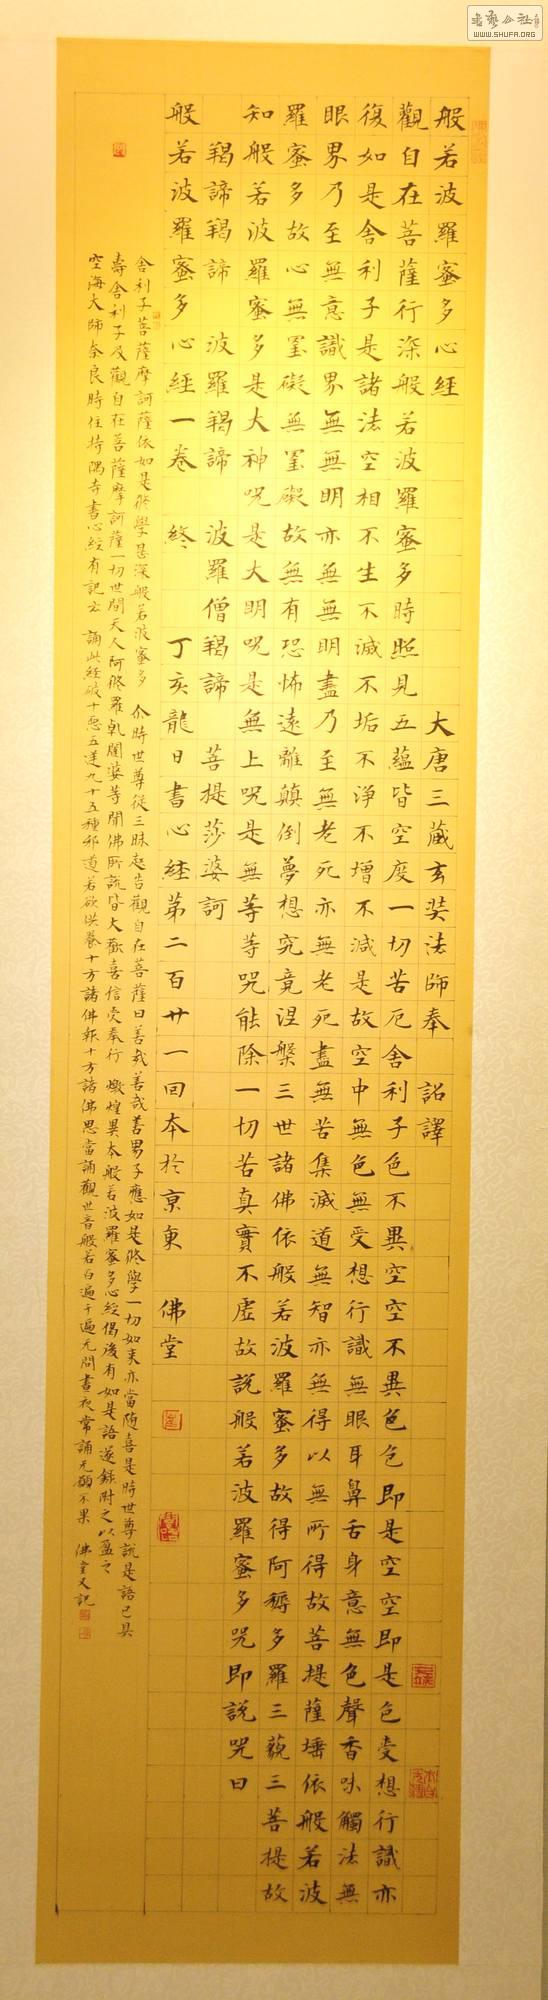 般若波羅蜜多心經 大唐三藏玄奘法師奉 詔譯
觀自在菩薩行深般若波羅蜜多時照見五蘊皆空度一切苦厄舍利子色不異空空不異色色即是空空即是色受想行識亦
復如是舍利子是諸法空相不生不滅不垢不淨不增不減是故空中無色無受想行識無眼耳鼻舌身意無色聲香味觸法無
眼界乃至無意識界無無明亦無無明盡乃至無老死亦無老死盡無苦集滅道無智亦無得以無所得故菩提薩埵依般若波
羅蜜多故心無罣礙無罣礙故無有恐怖遠離顛倒夢想究竟涅槃三世諸佛依般若波羅蜜多故得阿耨多羅三藐三菩提故
知般若波羅蜜多是大神咒是大明咒是無上咒是無等等咒能除一切苦真實不虛故說般若波羅蜜多咒即說咒曰
羯諦羯諦 波羅羯諦 波羅僧羯諦 菩提莎婆訶
般若波羅蜜多心經一卷 終 丁亥龍日書心經第二百廿一回本於京東 佛堂
舍利子菩薩摩訶薩依如是修學甚深般若波蜜多 尒時世尊從三昧起告觀自在菩薩曰善哉善哉善男子應如是修學一切如来亦當随喜是時世尊說是語已具
壽舍利子及觀自在菩薩摩訶薩一切世間天人阿修羅乾闥婆等聞佛所說皆大歡喜信受奉行 燉煌異本般若波羅蜜多心經偈後有如是語遂錄附之以盈之
空海大師奈良時住持隅寺書心經有記云 誦此經破十惡五逆九十五種邪道若欲供養十方諸佛報十方諸佛恩當誦觀世音般若百遍千遍无問晝夜常誦无願不果 佛堂又記
書藝公社
WWW.SHUFA.ORG